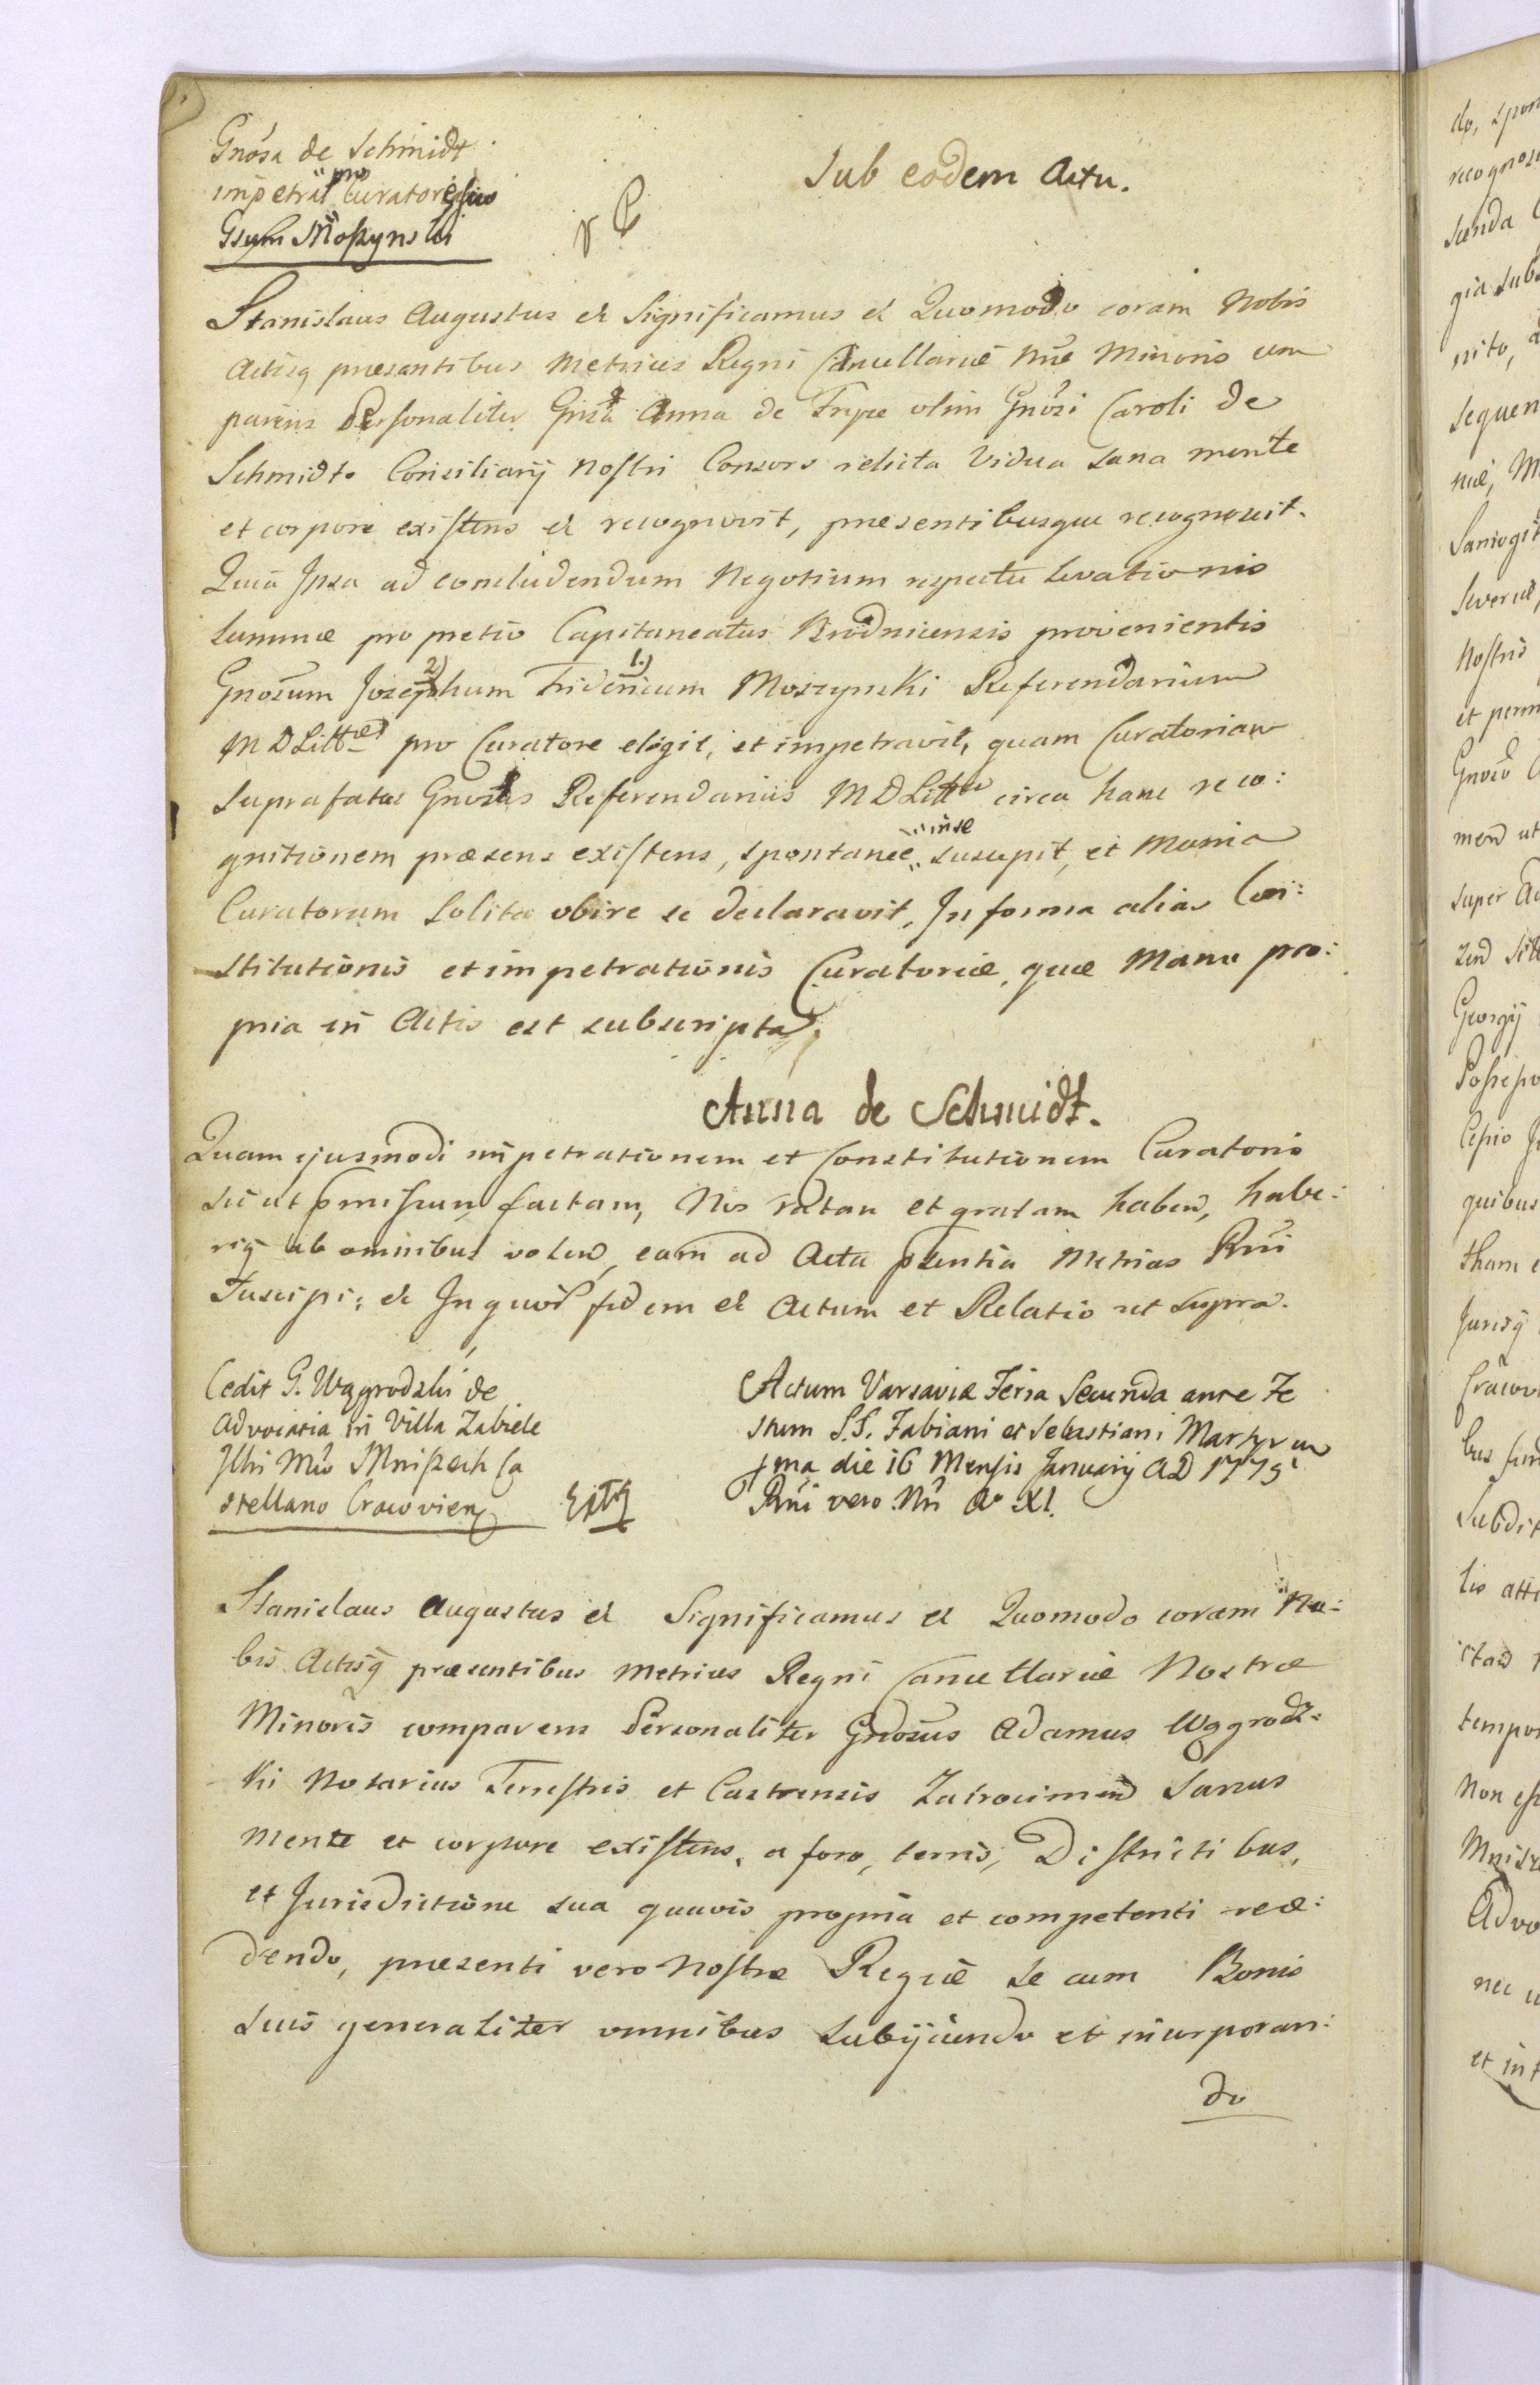 Gnosa de Schmidt
impetrat pro Curatore suo
Gsum Moszynski
Sub eodem Actu.
Stanislaus Augustus et Significamus et Quomodo coram Nobis
Actisq praesentibus Metrices Regni Cancellariae Nrae Minoris com
parens Personaliter Gnsa Anna de Frype olim Gnosi Caroli de
Schmidt Consiliarij Nostri Consors relicta Vidua sana mente
et corpore existens et recognovit, praesentibusque recognoscit.
Quia Ipsa ad concludendum Negotium respectu levationis
Summae pro pretio Capitaneatus Brodnicensis provenientis
Gnosum Josephum 2) Fridericum 1.) Moszynski Referendarium
M D Littae pro Curatore elegit, et impetravit, quam Curatoriam
Suprafatus Gnosus Referendarius M D Littae circa hanc reco:
gnitionem praesens existens, spontanee, in se suscepit, et Munia
Curatorum Solita obire se declaravit, In forma alias Con:
stitutionis et impetrationis Curatoriae, quae Manu pro:
pria in Actis est subscripta.
Anna de Schmidt.
Quam ejusmodi impetrationem et Constitutionem Curatoris
sicut pmissum factam, Nos ratam et gratam haben, habe:
riq ab omnibus volen, eam ad Acta psentia Metrices Rni
Suscipi; et In quor fidem et Actum et Relatio ut supra.
Cedit G. Wągrodzki de
Advocatia in Villa Zabiele
Illri Mco Mniszech Ca
stellano Cracovien
Actum Varsaviae Feria Secunda ante Fe
stum S.S. Fabiani et Sebastiani Martyrum
pma die 16 Mensis January AD 1775
Rni vero Nri Ao XI.
Stanislaus Augustus et Significamus et Quomodo coram No:
bis Actisq praesentibus Metrices Regni Cancellariae Nostrae
Minoris comparens Personaliter Gnosus Adamus Wągrodz:
ki Notarius Terrestris et Castrensis Zakrocimen Sanus
mente et corpore existens, a foro, terris, Districtibus,
et Jurisdictione sua quavis propria et competenti rece:
dendo, praesenti vero Nostrae Regiae se cum Bonis
suis generaliter omnibus subijciendo et incorporan:
do